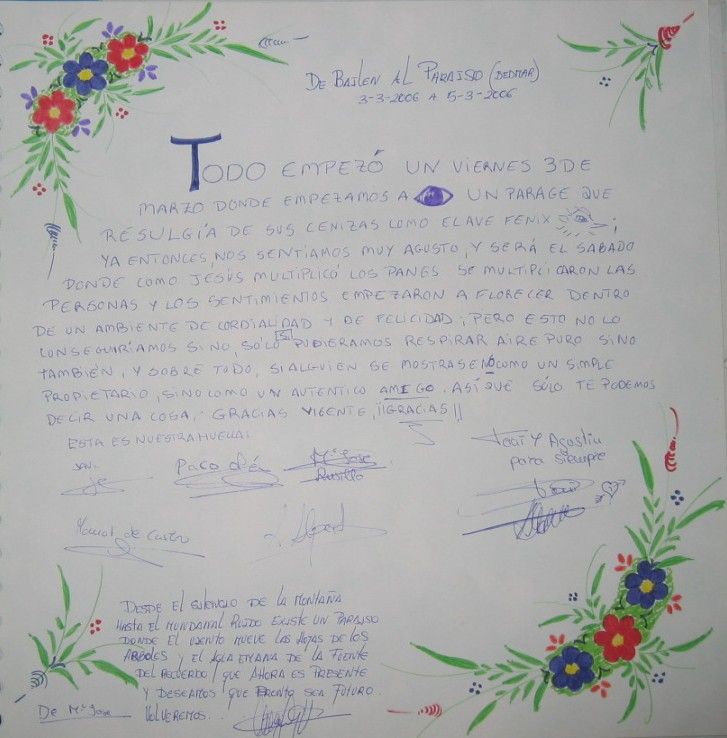 DE BAILEN AL PARAISO (BEDMAR)
3-3-2006 A 5-3-2006
TODO EMPEZÓ UN VIERNES 3 DE
MARZO DONDE EMPEZAMOS A UN PARAGE QUE
RESULGÍA DE SUS CENIZAS COMO EL AVE FENIX ;
YA ENTONCES, NOS SENTÍAMOS MUY AGUSTO, Y SERÁ EL SABADO
DONDE COMO JESÚS MULTIPLICÓ LOS PANES SE MULTIPLICARON LAS
PERSONAS Y LOS SENTIMIENTOS EMPEZARON A FLORECER DENTRO
DE UN AMBIENTE DE CORDIALIDAD Y DE FELICIDAD; PERO ESTO NO LO
CONSEGUIRÍAMOS SI NO, SÓLO SI PUDIERAMOS RESPIRAR AIRE PURO SINO
TAMBIÉN, Y SOBRE TODO, SI ALGUIEN SE MOSTRASE NO COMO UN SIMPLE
PROPIETARIO, SINO COMO UN AUTENTICO AMIGO. ASÍ QUE SÓLO TE PODEMOS
DECIR UNA COSA, GRACIAS VICENTE, ¡¡GRACIAS!!
ESTA ES NUESTRA HUELLA:
Toñi Y Agustín
para siempre
Paco
Mª Jose
Rusillo
Manol de Castro
DESDE EL SILENCIO DE LA MONTAÑA
HASTA EL MUNDANAL RUIDO EXISTE UN PARAISO
DONDE EL VIENTO MUEVE LAS HOJAS DE LOS
ARBOLES Y EL AGUA EMANA DE LA FUENTE
DEL RECUERDO, QUE AHORA ES PRESENTE
Y DESEAMOS QUE PRONTO SEA FUTURO.
VOLVEREMOS...
De Mª Jose